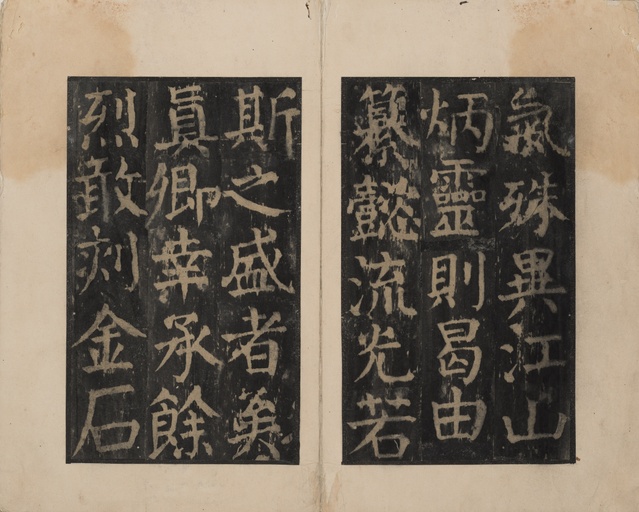 氣殊異江山
炳靈則曷由
纂懿流光若
斯之盛者矣
眞卿幸承餘
烈敢刻金石